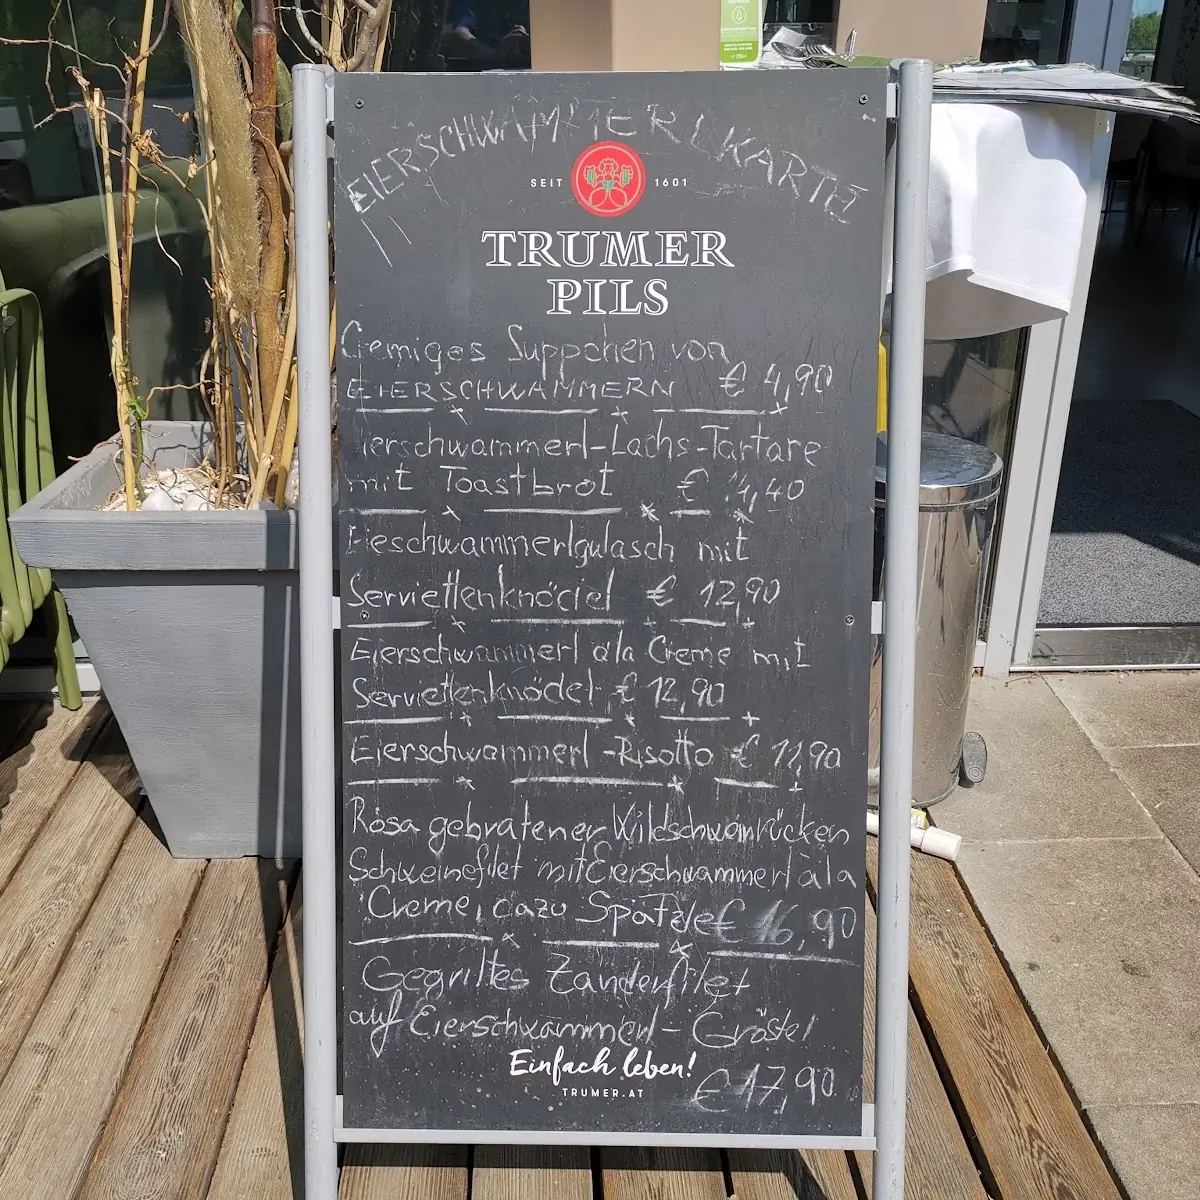 EIERSCHWAMMERLKARTE
SEIT 1601
TRUMER
PILS
Cremiges Süppchen von
EIERSCHWAMMERN € 4,90
Eierschwammerl-Lachs-Tartare
mit Toastbrot € 14,40
Eieschwammerlgulasch mit
Serviettenknödel € 12,90
Eierschwammerl ala Creme mit
Serviettenknödel € 12,90
Eierschwammerl-Risotto € 11,90
Rosa gebratener Wildschweinrücken
Schweinefilet mit Eierschwammerl à la
Creme, dazu Spätzle € 16,90
Gegrilltes Zanderfilet
auf Eierschwammerl-Gröstel
Einfach leben!
TRUMER.AT
€ 17,90